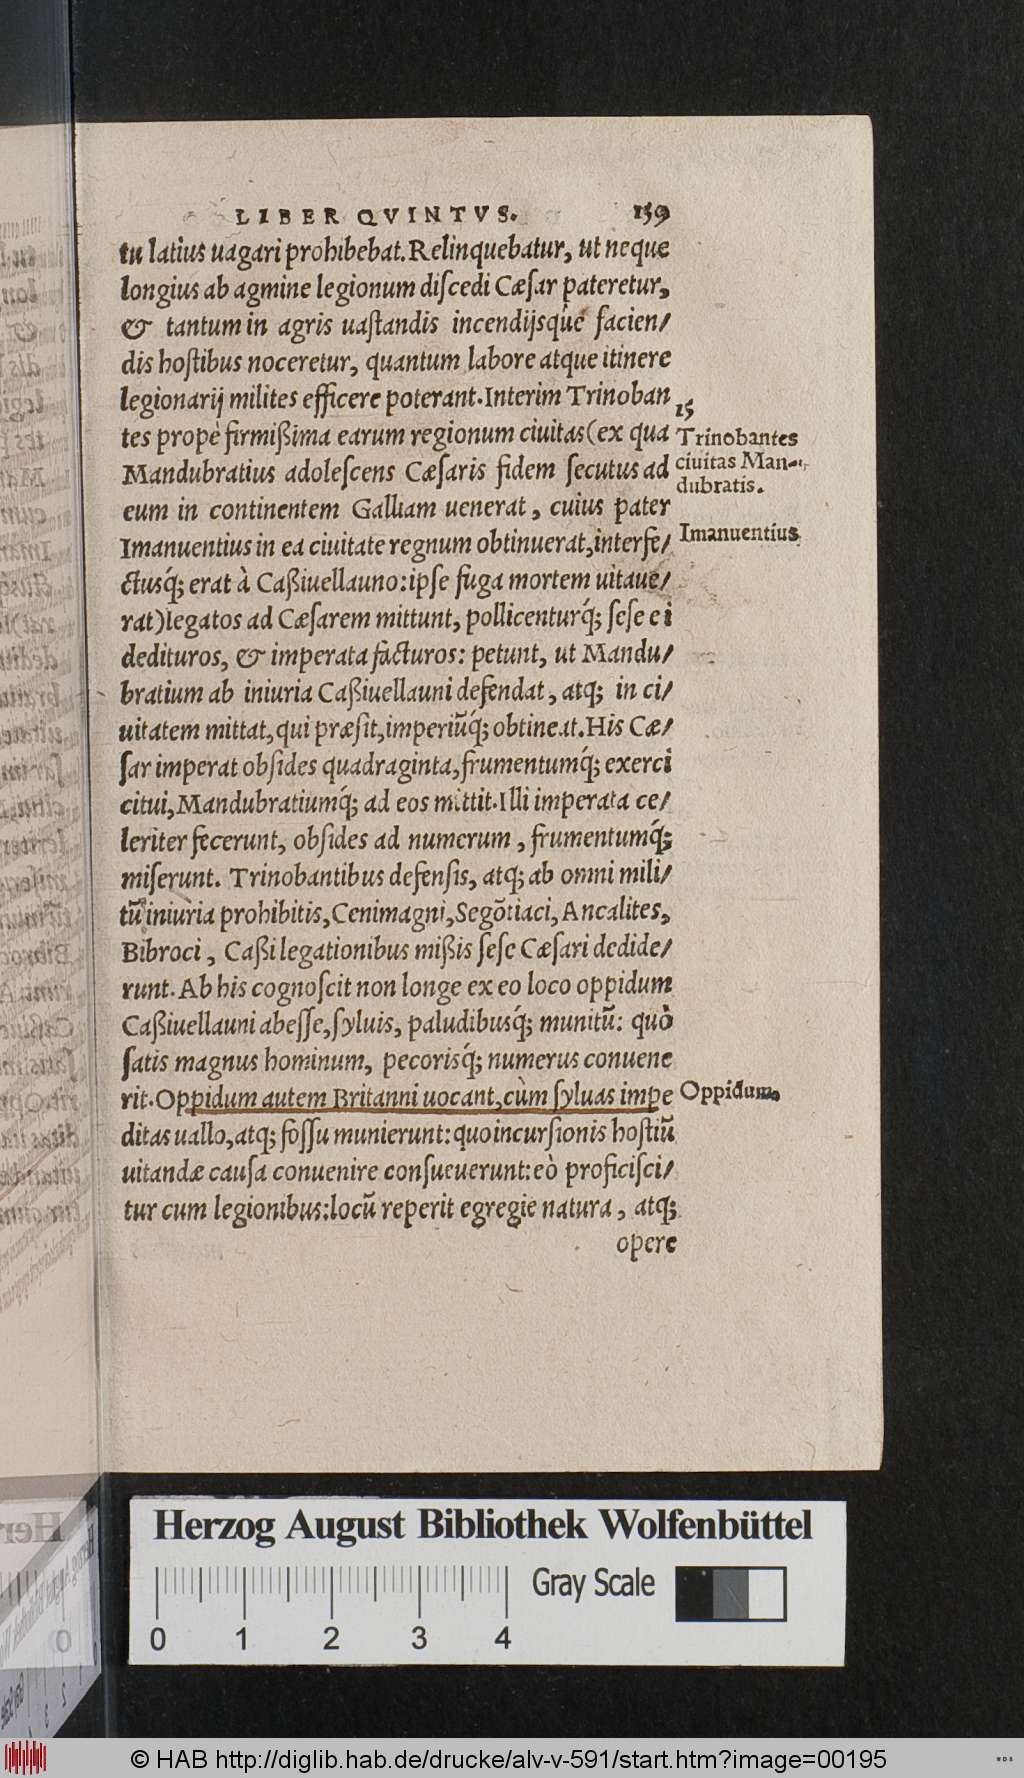 LIBER QVINTVS. 159
tu latius uagari prohibebat. Relinquebatur, ut neque
longius ab agmine legionum diſcedi Cæſar pateretur,
& tantum in agris uaſtandis incendijsqúe facien/
dis hoſtibus noceretur, quantum labore atque itinere
legionarij milites efficere poterant. Interim Trinoban
15
tes propè firmißima earum regionum ciuitas (ex qua
Trinobantes
Mandubratius adoleſcens Cæſaris fidem ſecutus ad
ciuitas Man-
dubratis.
eum in continentem Galliam uenerat, cuius pater
Imanuentius in ea ciuitate regnum obtinuerat, interfe/
Imanuentius
ctusq́; erat à Caßiuellauno: ipſe fuga mortem uitaue/
rat) legatos ad Cæſarem mittunt, pollicenturq́; ſeſe ei
dedituros, & imperata facturos: petunt, ut Mandu/
bratium ab iniuria Caßiuellauni defendat, atq; in ci/
uitatem mittat, qui præſit, imperiũq́; obtineat. His Cæ/
ſar imperat obſides quadraginta, frumentumq́; exerci
citui, Mandubratiumq́; ad eos mittit. Illi imperata ce/
leriter fecerunt, obſides ad numerum, frumentumq́;
miſerunt. Trinobantibus defenſis, atq; ab omni mili/
tũ iniuria prohibitis, Cenimagni, Segõtiaci, Ancalites,
Bibroci, Caßi legationibus mißis ſeſe Cæſari dedide/
runt. Ab his cognoſcit non longe ex eo loco oppidum
Caßiuellauni abeſſe, ſyluis, paludibusq́; munitũ: quò
ſatis magnus hominum, pecorisq́; numerus conuene
rit. Oppidum autem Britanni uocant, cùm ſyluas impe
Oppidum.
ditas uallo, atq; foſſa munierunt: quo incurſionis hoſtiũ
uitandæ cauſa conuenire conſueuerunt: eò proficiſci/
tur cum legionibus: locũ reperit egregie natura, atq;
opere
Herzog August Bibliothek Wolfenbüttel
Gray Scale
0 1 2 3 4
© HAB http://diglib.hab.de/drucke/alv-v-591/start.htm?image=00195